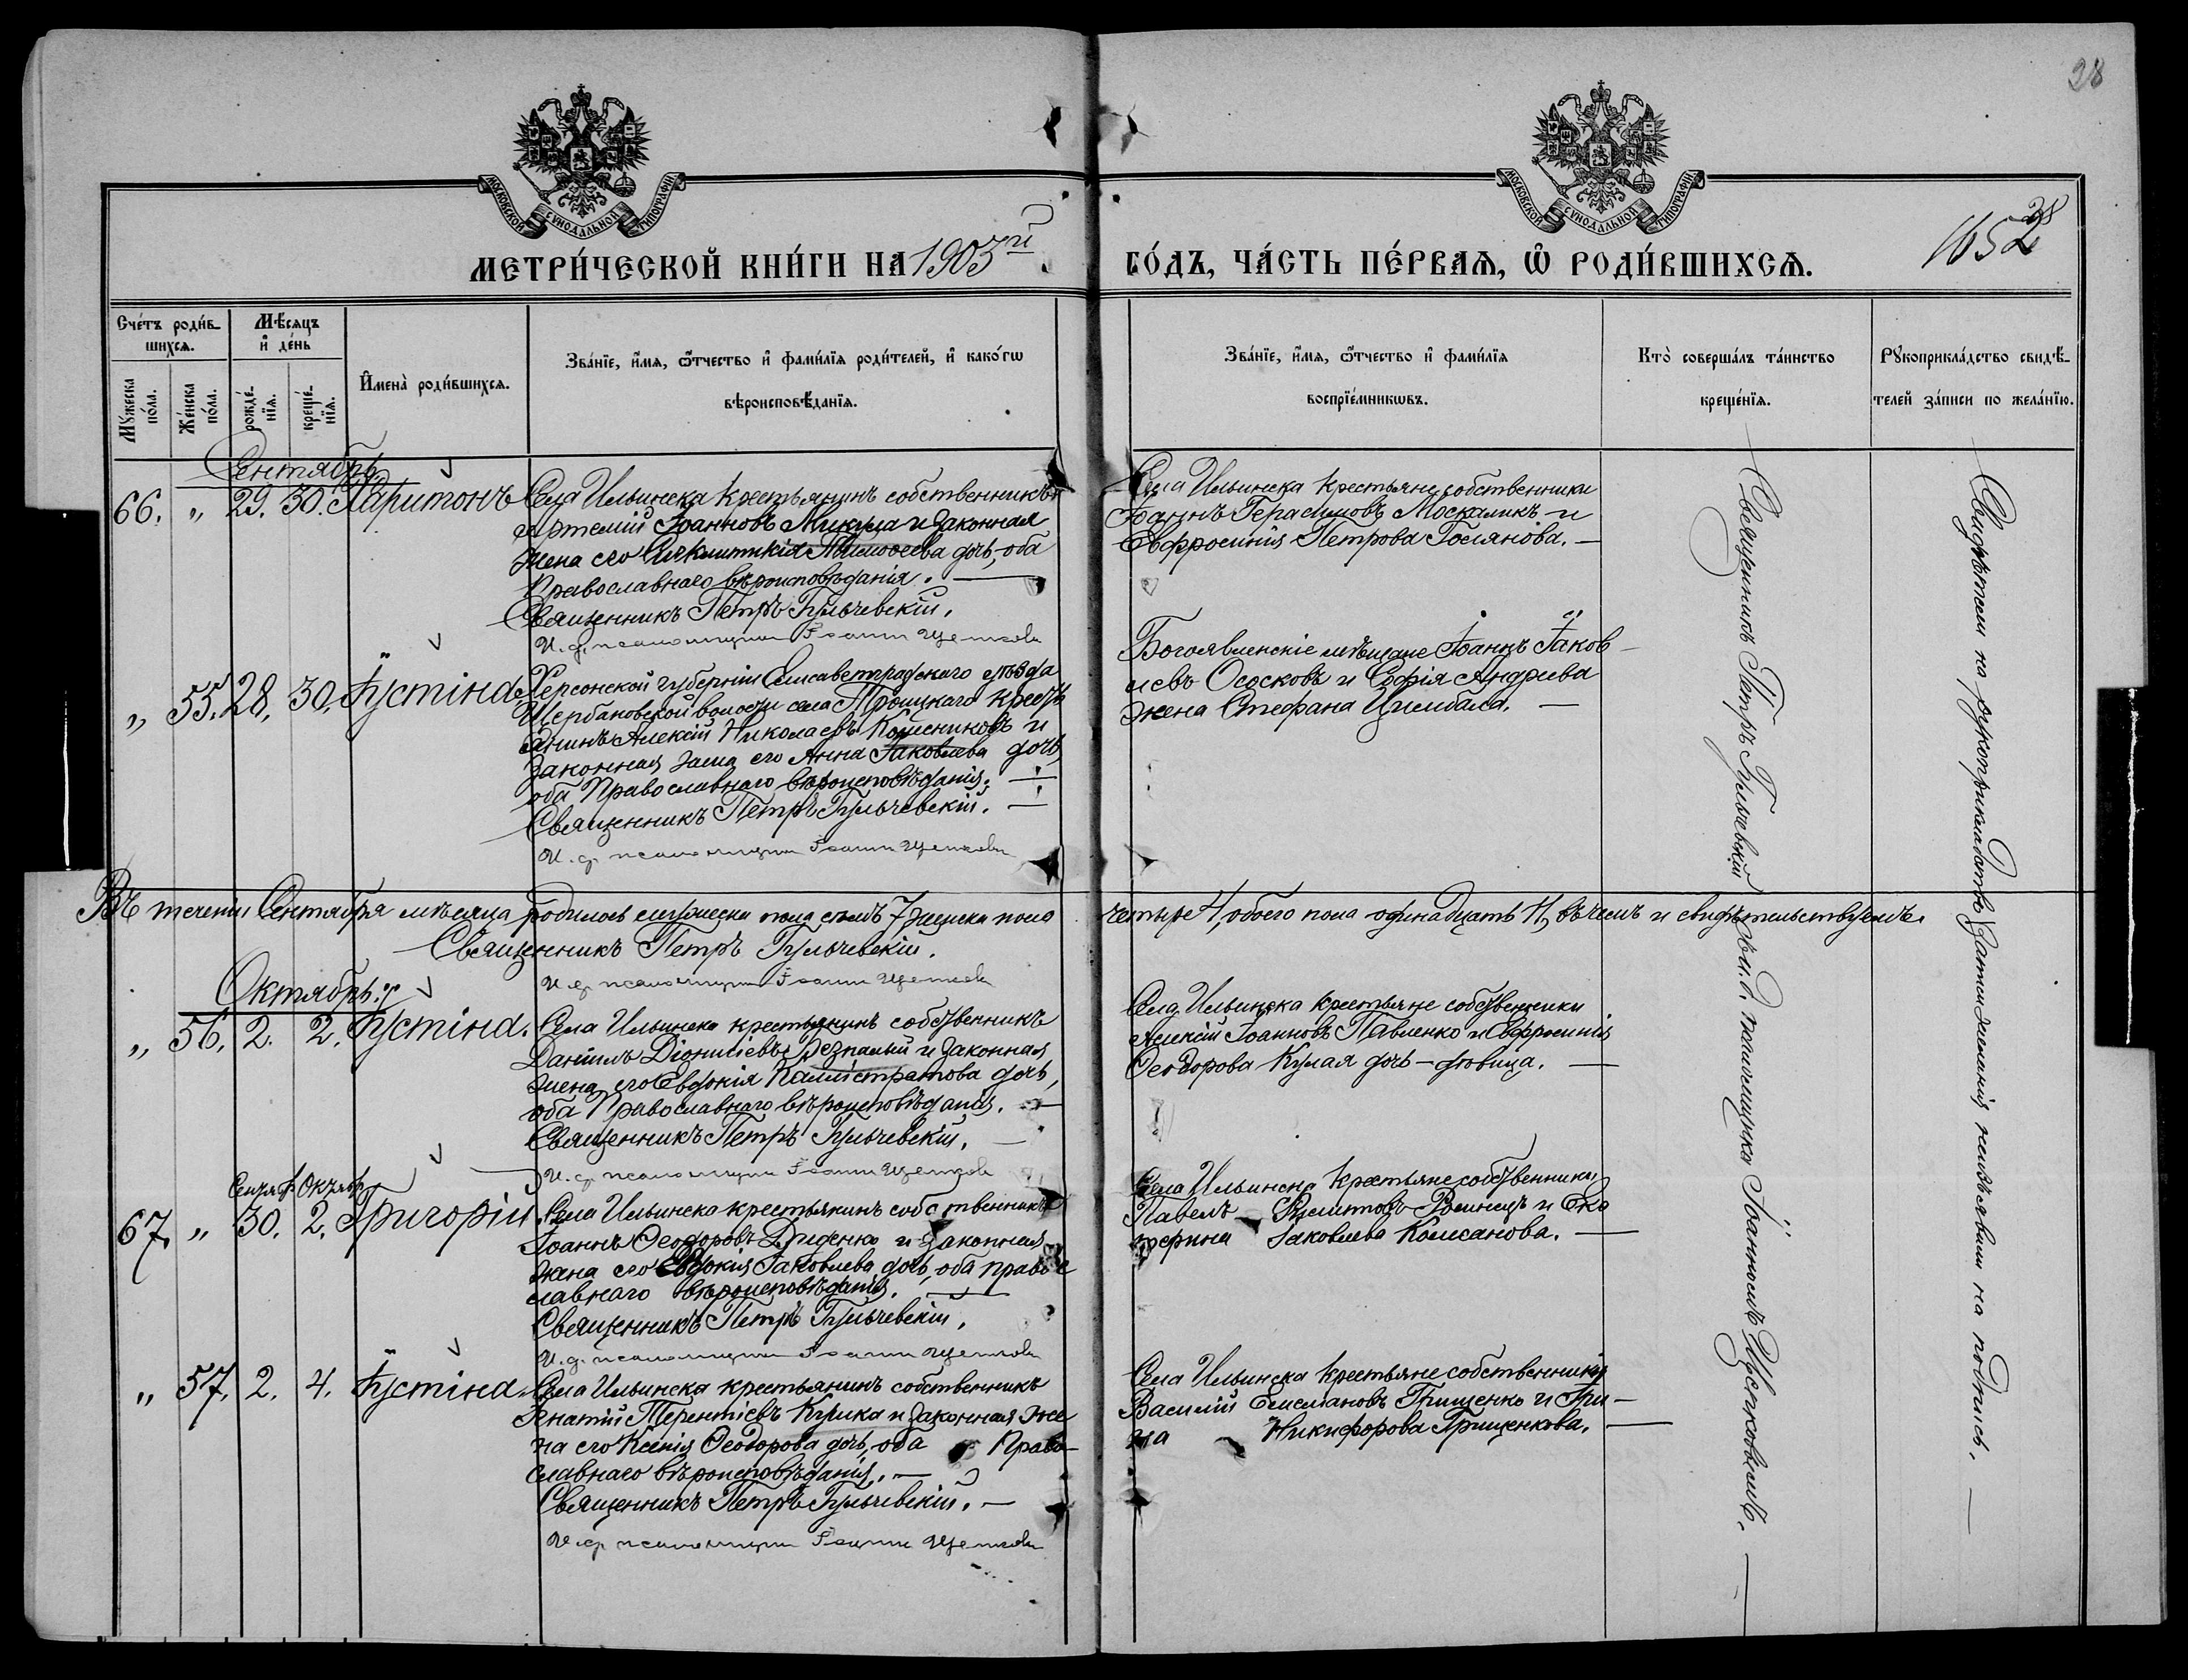 28
МОСКОВСКОЙ СѴНОДАЛЬНОЙ ТИПОГРАФІИ
МОСКОВСКОЙ СѴНОДАЛЬНОЙ ТИПОГРАФІИ
МЕТРИ́ЧЕСКОЙ КНИ́ГИ НА 1903й ГО́ДЪ, ЧА́СТЬ ПЕ́РВАѦ, Ѡ РОДИ́ВШИХСѦ.
1652
28
Сче́тъ роди́в-
шихсѧ.
Мѣ́сяцъ
и де́нь
Мꙋ́жеска по́ла.
Же́нска по́ла.
рожде́-нїѧ.
креще́-нїѧ.
Имена̀ роди́вшихсѧ.
Зва́нїе, и́мѧ, ѻ҆́тчество и фами́лїѧ роди́телей, и како́гѡ
вѣроисповѣ́данїѧ.
Зва́нїе, и́мѧ, ѻ҆́тчество и фами́лїѧ
воспрїе́мникѡвъ.
Кто̀ соверша́лъ та́инство
креще́нїѧ.
Рꙋкоприкла́дство свидѣ́-
телей за́писи по жела́нїю.
Сентябрь
66. „ 29. 30. Харитонъ
Села Ильинска крестьянинъ собственникъ
Артемій Іоанновъ Микула и законная
жена его Тимоѳеева дочь, оба
Православнаго вѣроисповѣданія. —
Священникъ Петръ Гульчевскій.
И. д. псаломщика Іоаннъ Щетковъ
Села Ильинска крестьяне собственники
Іоаннъ Герасимовъ Москаликъ и
Евфросинія Петрова Гоелянова. —
„ 55. 28. 30. Іустіна
Херсонской губерніи Елисаветградскаго уѣзда
Щербановской волости села Троицкаго крестья
янинъ Алексій Николаевъ Колесниковъ и
законная жена его Анна Іаковлева дочь
оба Православнаго вѣроисповѣданія. —
Священникъ Петръ Гульчевскій. —
И. д. псаломщика Іоаннъ Щетковъ
Богоявленскіе мѣщане Іоаннъ Іаков
левъ Ососковъ и Софія Андреева
жена Стефана Цымбала. —
Въ теченіи Сентября мѣсяца родилось мужеска пола семь 7, женска пола четыре 4, обоего пола одинадцать 11, въ чемъ и свидѣтельствуемъ.
Священникъ Петръ Гульчевскій.
И. д. псаломщика Іоаннъ Щетковъ
Октябрь
„ 56. 2. 2. Іустіна.
Села Ильинска крестьянинъ собственникъ
Даніилъ Діонисіевъ Резналый и законная
жена его Евдокія Каллістратова дочь,
оба Православнаго вѣроисповѣданія. —
Священникъ Петръ Гульчевскій. —
И. д. псаломщика Іоаннъ Щетковъ
Села Ильинска крестьяне собственники
Алексій Іоанновъ Павленко и Евфросинія
Ѳеодорова Кулая дочь — дѣвица. —
Сентяб. Октябр.
67. „ 30. 2. Григорій
Села Ильинска крестьянинъ собственникъ
Іоаннъ Ѳеодоровъ Диденко и законная
жена его Евдокія Іаковлева дочь, оба право
славнаго вѣроисповѣданія. —
Священникъ Петръ Гульчевскій.
И. д. псаломщика Іоаннъ Щетковъ
Села Ильинска крестьяне собственники
Павелъ и Ека
терина Іаковлева Колесанова. —
„ 57. 2. 4. Іустіна
Села Ильинска крестьянинъ собственникъ
Игнатій Терентіевъ Кушка и законная же
на его Ксенія Ѳеодорова дочь, оба Право-
славнаго вѣроисповѣданія. —
Священникъ Петръ Гульчевскій. —
И. д. псаломщика Іоаннъ Щетковъ
Села Ильинска крестьяне собственники
Василій Емеліановъ Грищенко и Ири-
на Никифорова Грищенкова. —
Священникъ Петръ Гульчевскій съ и. д. псаломщика Іоанномъ Щетковымъ. —
Свидѣтели на рукоприкладство записи желанія неизъявили на подпись. —